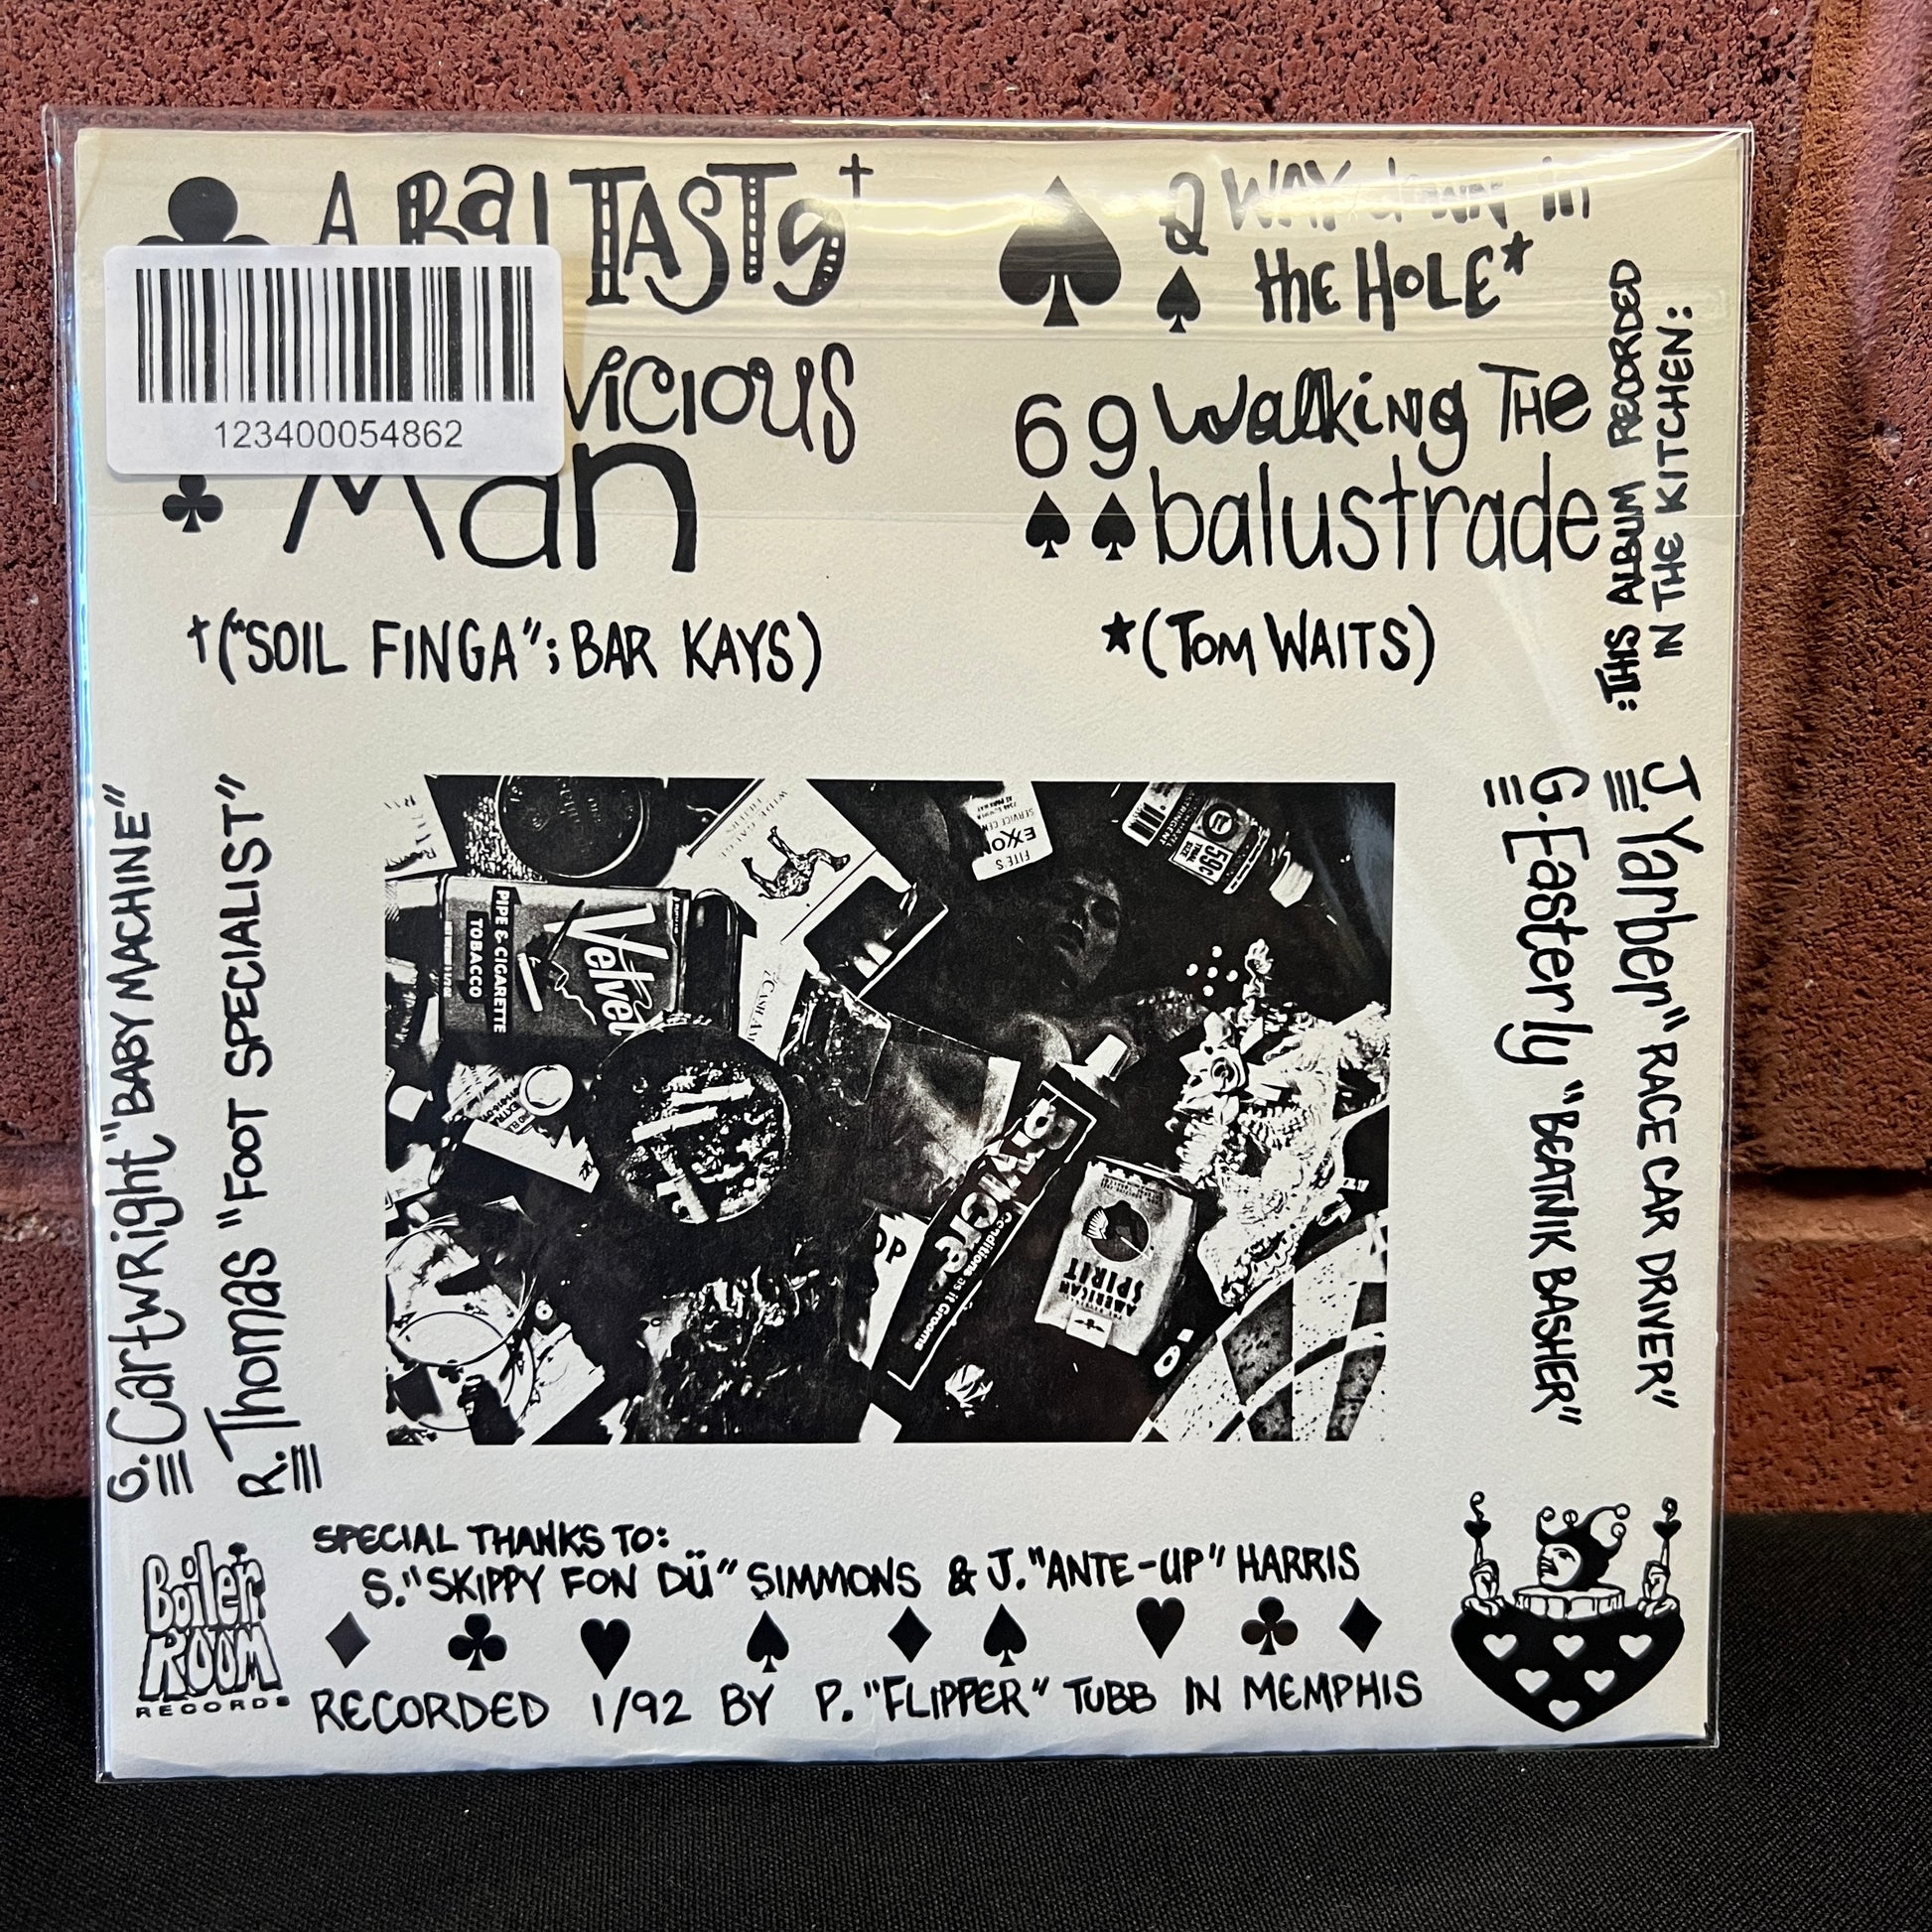 A Real TASTy†
vicious
Man
†("SOIL FINGA"; BAR KAYS)
123400054862
Q WAY down in
the HOLE*
6 9 Walking The
balustrade
*(TOM WAITS)
:THIS ALBUM RECORDED
IN THE KITCHEN:
G. Cartwright "BABY MACHINE"
R. Thomas "FOOT SPECIALIST"
J. Yarber "RACE CAR DRIVER"
G. Easterly "BEATNIK BASHER"
Velvet
PIPE & CIGARETTE
TOBACCO
WIDE GAUGE
FILTERS
FITE'S
EXXON
SERVICE CEN
59¢
Brylcreem
Conditions as it Grooms
AMERICAN
SPIRIT
OP
SPECIAL THANKS TO:
S. "SKIPPY FON DÜ" SIMMONS & J. "ANTE-UP" HARRIS
RECORDED 1/92 BY P. "FLIPPER" TUBB IN MEMPHIS
Boiler
ROOM
RECORDS